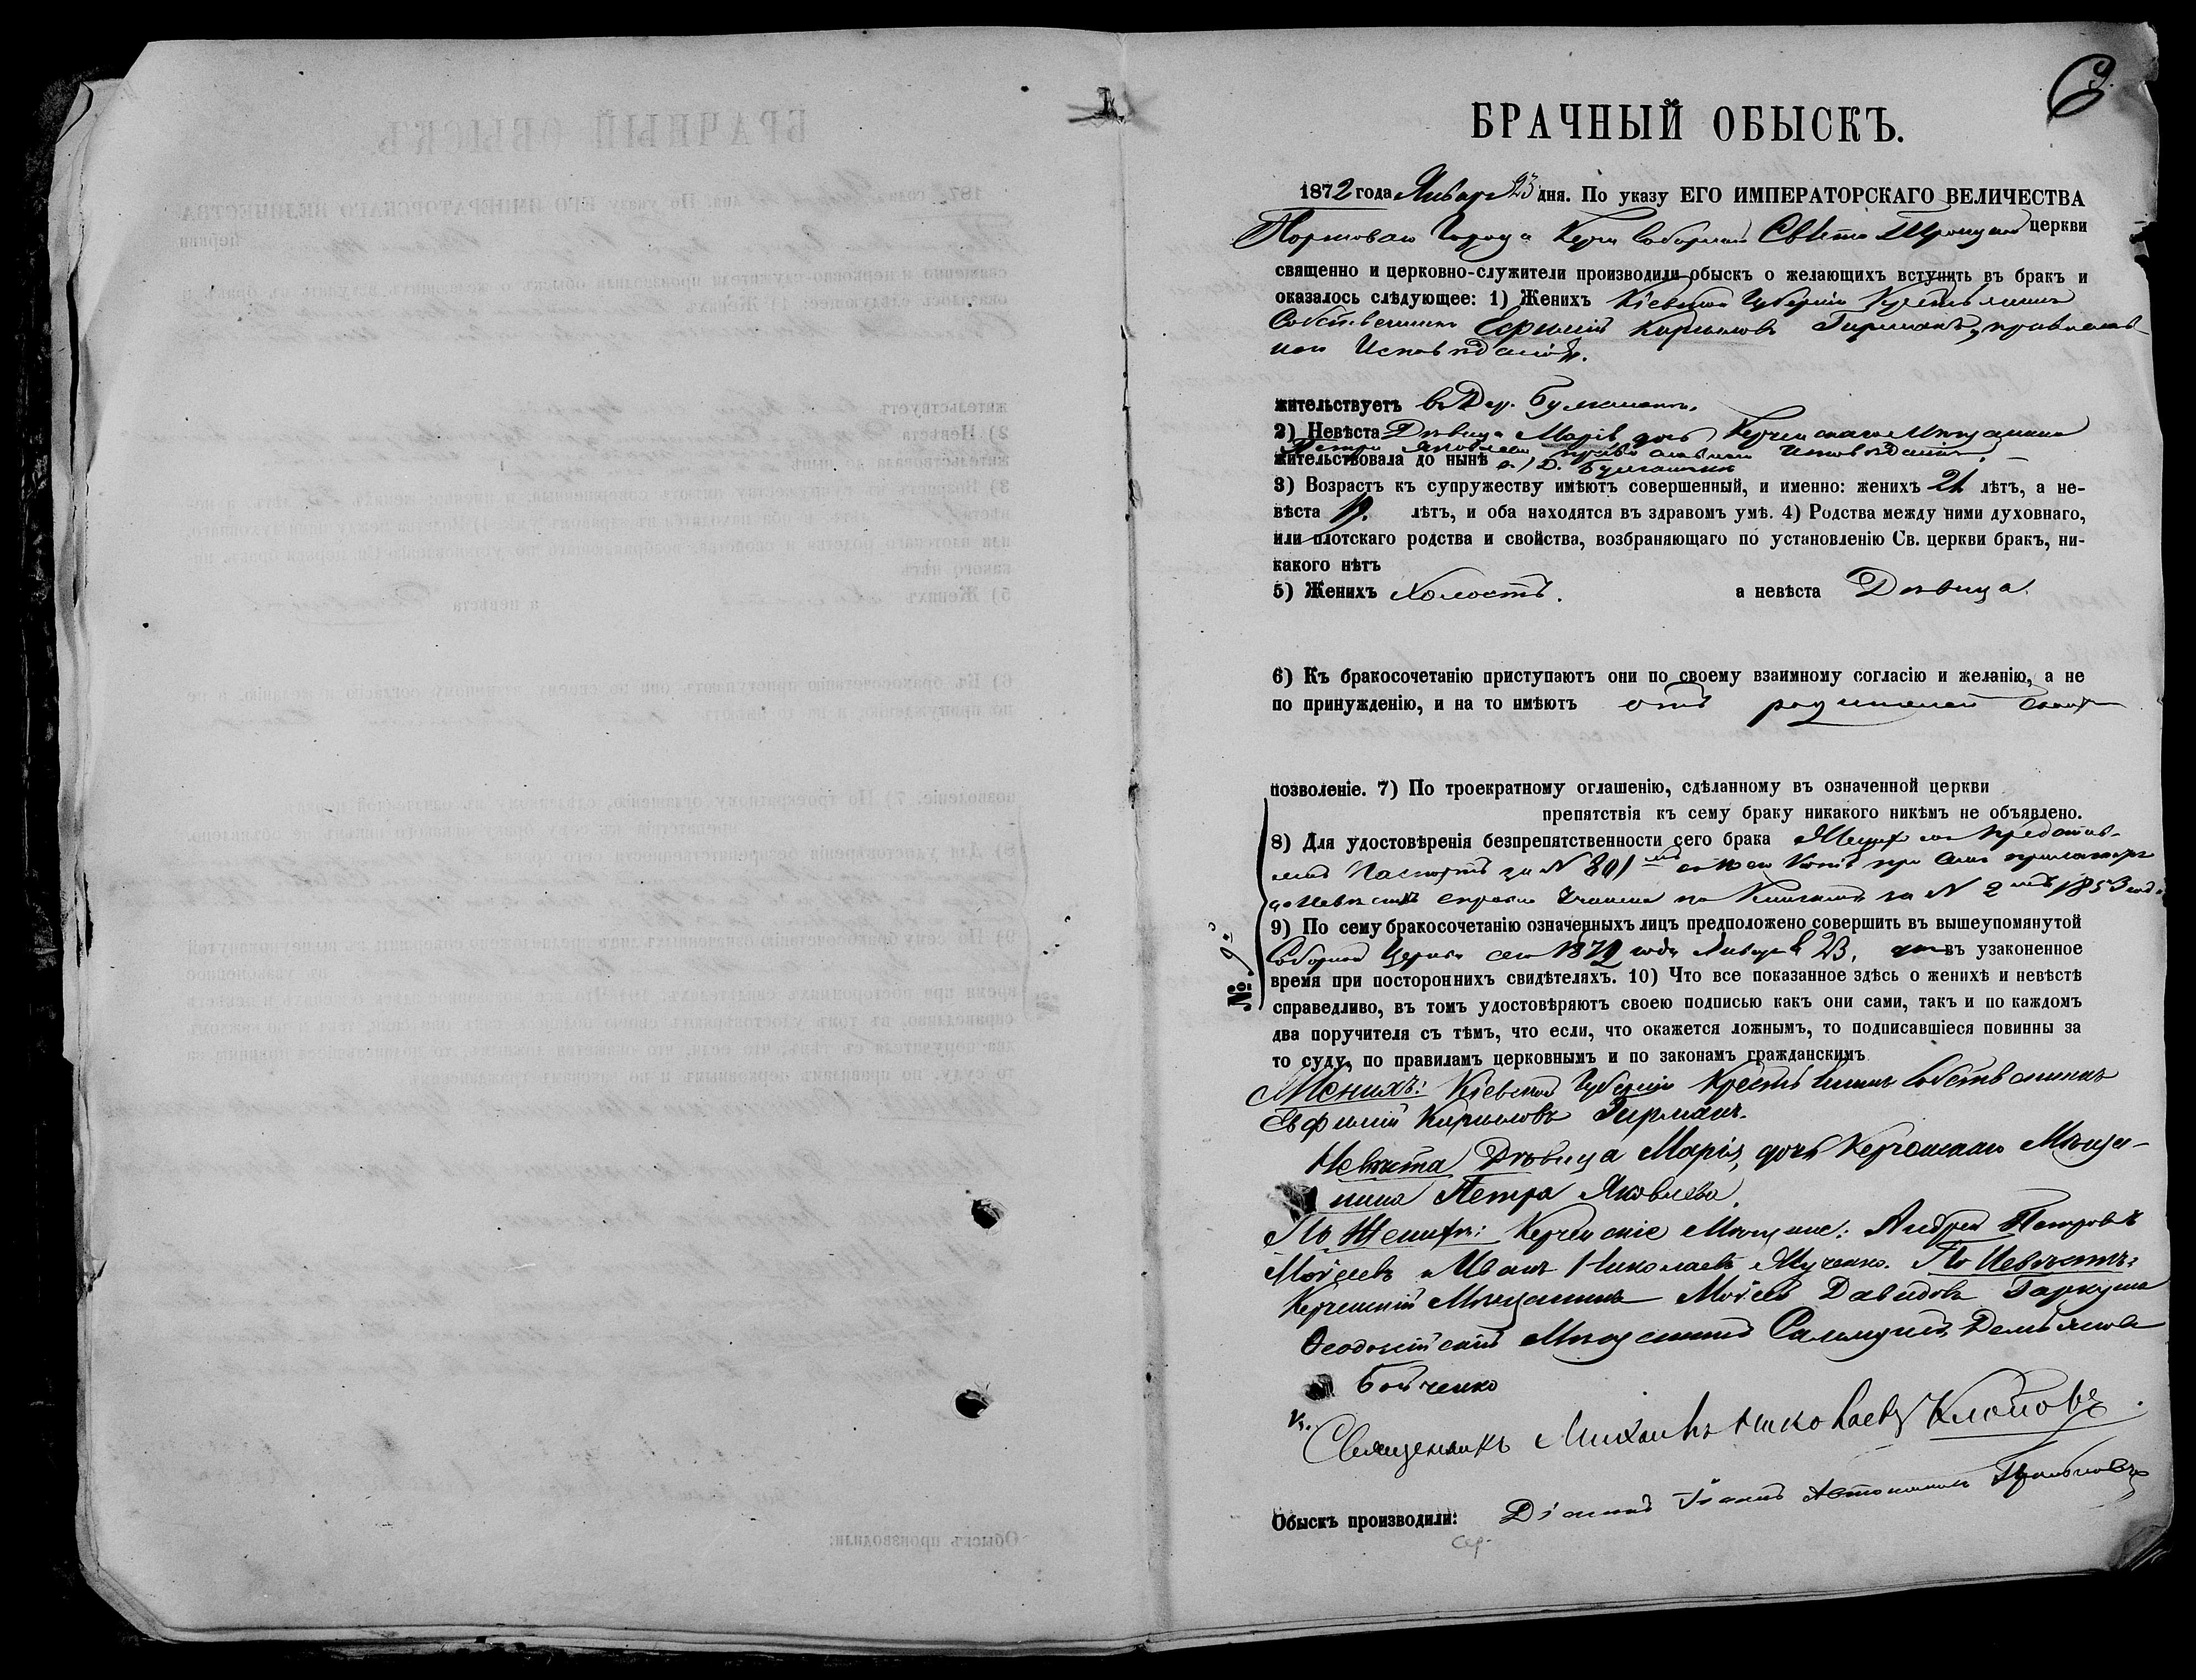 БРАЧНЫЙ ОБЫСКЪ.
1872 года Января 23 дня. По указу ЕГО ИМПЕРАТОРСКАГО ВЕЛИЧЕСТВА
Портоваго Города Керчи Соборной Свято Троицкой церкви
священно и церковно-служители производили обыскъ о желающихъ вступить въ бракъ и
оказалось слѣдующее: 1) Женихъ Кіевской Губерніи Крестьянинъ
Собственникъ Ефимій Кириловъ Гирманъ, православ-
наго Исповѣданія.
жительствуетъ въ Дер. Булганакъ.
2) Невѣста Дѣвица Марія, дочь Керченскаго Мѣщанина
Петра Яковлева православнаго Исповѣданія.
жительствовала до нынѣ в Д. Булганакъ
3) Возрастъ къ супружеству имѣютъ совершенный, и именно: женихъ 21 лѣтъ, а не-
вѣста 19. лѣтъ, и оба находятся въ здравомъ умѣ. 4) Родства между ними духовнаго,
или плотскаго родства и свойства, возбраняющаго по установленію Св. церкви бракъ, ни-
какого нѣтъ
5) Женихъ Холостъ. а невѣста Дѣвица.
6) Къ бракосочетанію приступаютъ они по своему взаимному согласію и желанію, а не
по принужденію, и на то имѣютъ отъ родителей своихъ
позволеніе. 7) По троекратному оглашенію, сдѣланному въ означенной церкви
препятствія къ сему браку никакого никѣмъ не объявлено.
8) Для удостовѣренія безпрепятственности сего брака Жених представ-
Паспортъ за N 801 при семъ
Невѣстѣ справка по Книгамъ за N 2 1853 года
9) По сему бракосочетанію означенныхъ лицъ предположено совершить въ вышеупомянутой
Соборной Церкви сего 1872 года Января 23, дня въ узаконенное
время при постороннихъ свидѣтеляхъ. 10) Что все показанное здѣсь о женихѣ и невѣстѣ
№ 9
справедливо, въ томъ удостовѣряютъ своею подписью какъ они сами, такъ и по каждомъ
два поручителя съ тѣмъ, что если, что окажется ложнымъ, то подписавшіеся повинны за
то суду, по правиламъ церковнымъ и по законамъ гражданскимъ
Женихъ: Кіевской Губерніи Крестьянинъ Собственникъ
Ефимій Кириловъ Гирманъ.
Невѣста Дѣвица Марія, дочь Керченскаго Мѣща-
нина Петра Яковлева.
По Женихѣ: Керченскіе Мѣщане: Андрей Петровъ
Моісеевъ и Иванъ Николаевъ Мученко. По Невѣстѣ:
Керченскій Мѣщанинъ Моісей Давидовъ Гаркуша
Ѳеодосійскій Мѣщанинъ Самуилъ Демьяновъ
Бойченко
Священникъ Михаилъ Николаевъ Клоповъ.
Обыскъ производили: Діаконъ Іоаннъ Автономовъ